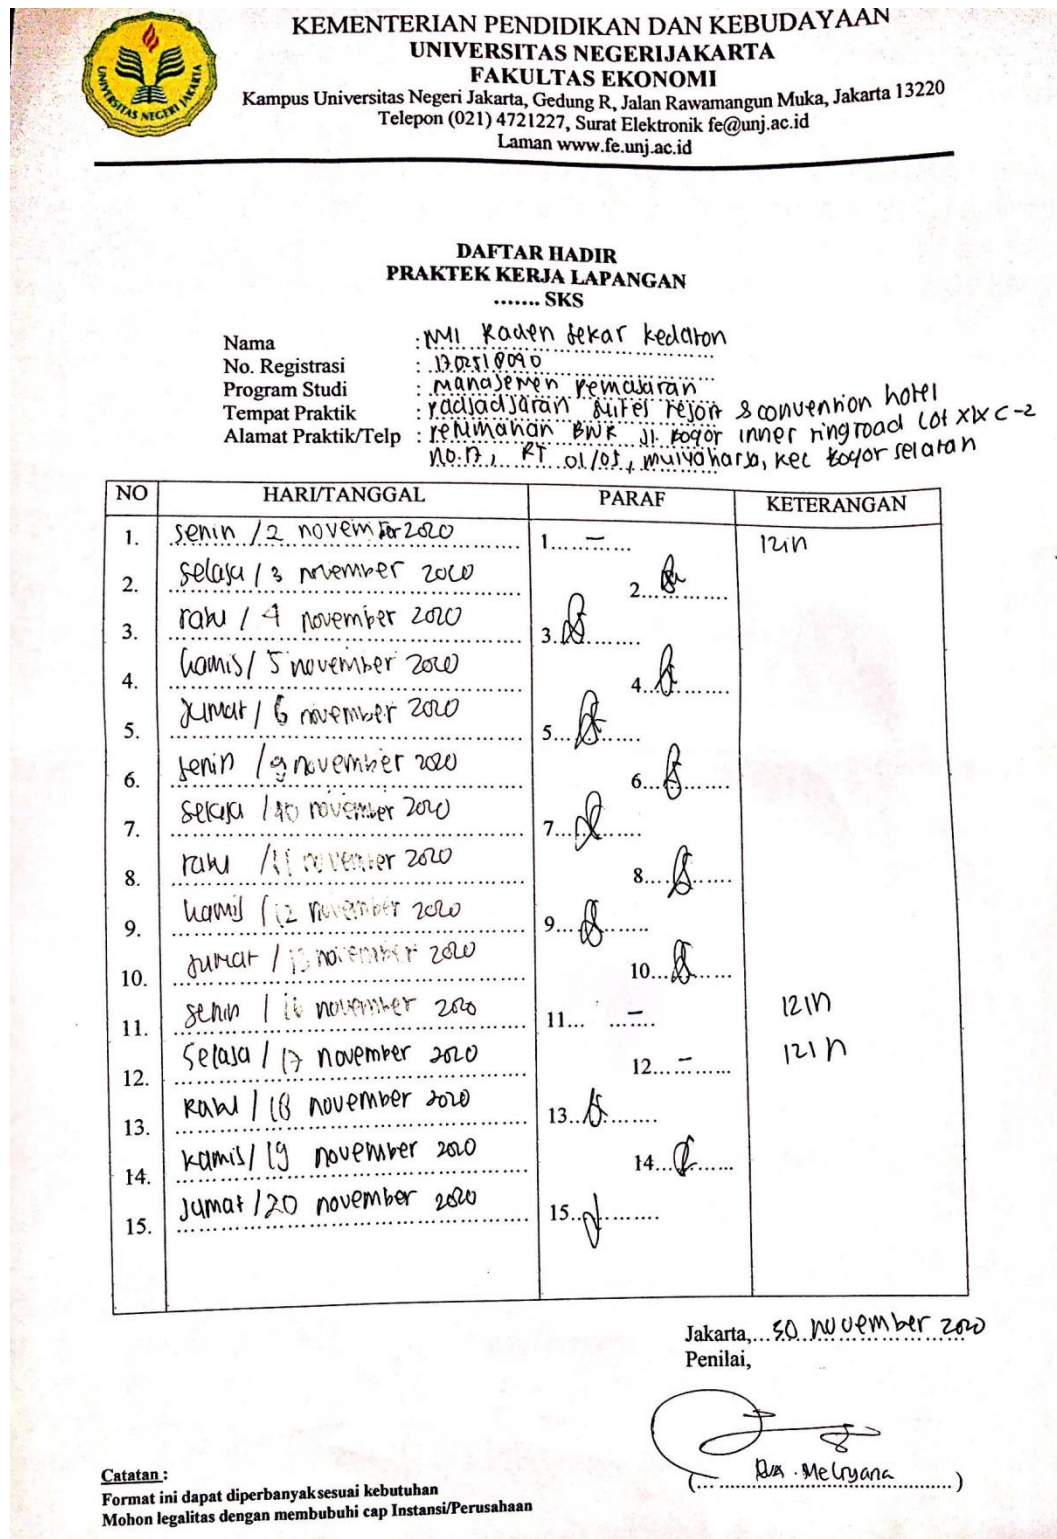 KEMENTERIAN PENDIDIKAN DAN KEBUDAYAAN
UNIVERSITAS NEGERIJAKARTA
FAKULTAS EKONOMI
Kampus Universitas Negeri Jakarta, Gedung R, Jalan Rawamangun Muka, Jakarta 13220
Telepon (021) 4721227, Surat Elektronik fe@unj.ac.id
Laman www.fe.unj.ac.id
UNIVERSITAS NEGERI JAKARTA
DAFTAR HADIR
PRAKTEK KERJA LAPANGAN
....... SKS
Nama : Raden Sekar Kedaton
No. Registrasi :
Program Studi : Manajemen Pemasaran
Tempat Praktik : radjadjaran suites resort & convention hotel
Alamat Praktik/Telp : Perumahan BNR Jl. Bogor inner ringroad Lot XIX C-2
No.17, RT 01/05, mulyaharja, kec Bogor selatan
NO HARI/TANGGAL PARAF KETERANGAN
1. senin / 2 november 2020 1...-... izin
2. selasa / 3 november 2020 2...
3. rabu / 4 november 2020 3...
4. kamis / 5 november 2020 4...
5. Jumat / 6 november 2020 5...
6. senin / 9 november 2020 6...
7. selasa / 10 november 2020 7...
8. rabu / 11 november 2020 8...
9. kamis / 12 november 2020 9...
10. jumat / 13 november 2020 10...
11. senin / 16 november 2020 11... - izin
12. Selasa / 17 november 2020 12... - izin
13. Rabu / 18 november 2020 13...
14. kamis / 19 november 2020 14...
15. Jumat / 20 november 2020 15...
Jakarta, 30 november 2020
Penilai,
(... Melryana ...)
Catatan :
Format ini dapat diperbanyaksesuai kebutuhan
Mohon legalitas dengan membubuhi cap Instansi/Perusahaan